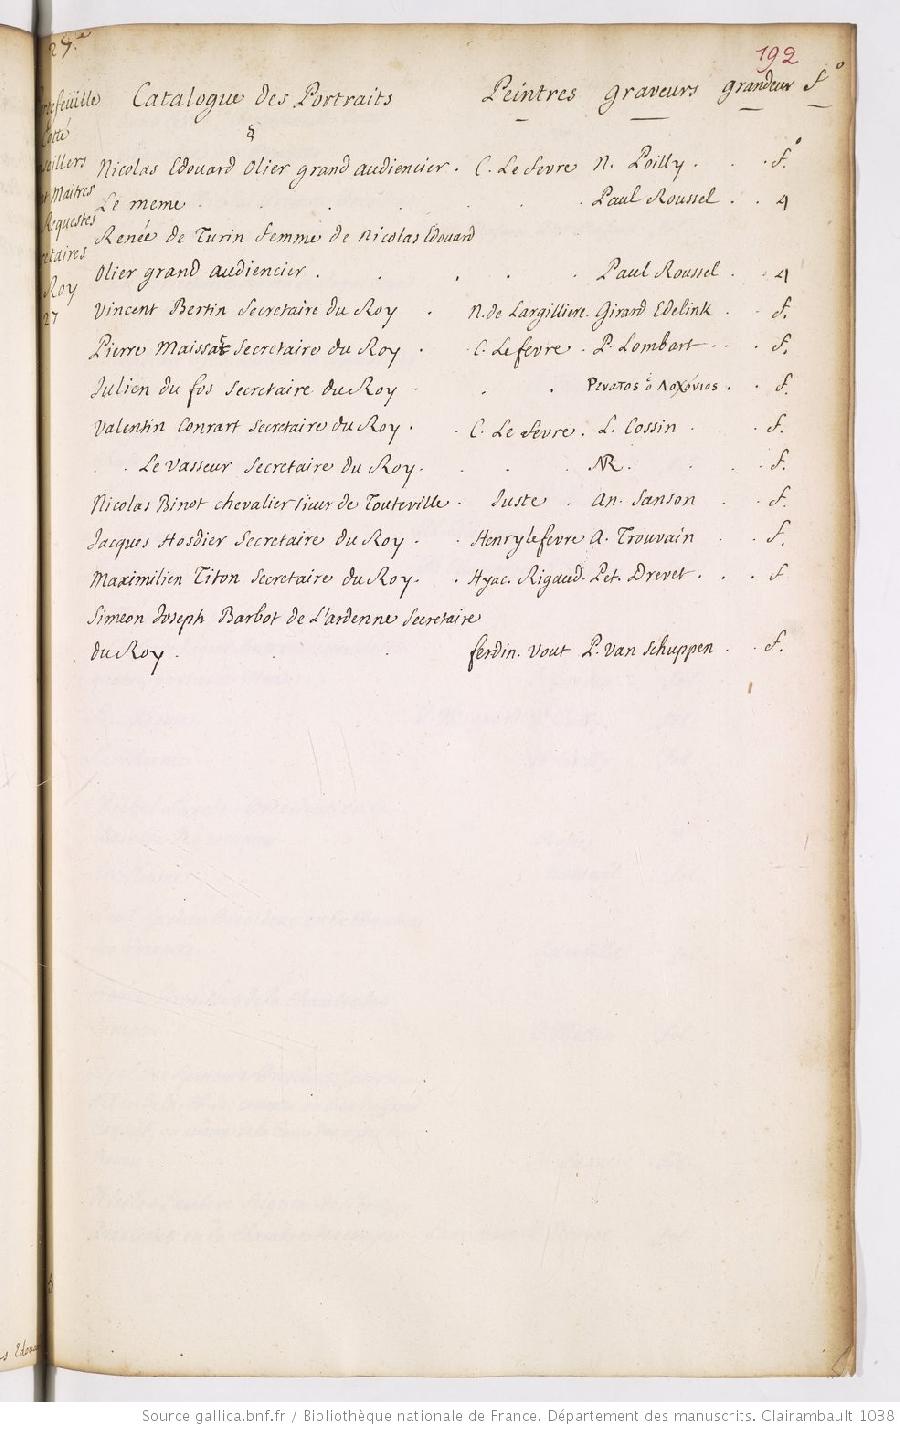 27.e
192
Portefeuille Catalogue des Portraits Peintres graveurs grandeur f.o
Cotté §
Conseillers
Nicolas Edouard Olier grand audiencier . C. Le fevre N. Poilly . . . f.o
et Maitres
Le meme . . . . . . Paul Roussel . . 4
Requestes
Renée de Turin femme de Nicolas Edouard
Secretaires
Olier grand audiencier . . . . . Paul Roussel . . 4
Roy
Vincent Bertin Secretaire du Roy . N. de Largilliere. Girard Edelink . . f.
27
Pierre Maissat Secretaire du Roy . . C. Lefevre . P. Lombart . . f.
Julien du fos Secretaire du Roy . . . Ρενατος ὁ Λοχόνιος . . f.
Valentin Conrart Secretaire du Roy . . C. Le fevre . L. Cossin . . f.
. . Le Vasseur Secretaire du Roy . . . . NR. . . . f.
Nicolas Binot chevalier sieur de Touteville . Juste . An. Sanson . . f.
Jacques Hosdier Secretaire du Roy . . Henry lefevre A. Trouvain . . f.
Maximilien Titon Secretaire du Roy . . Hyac. Rigaud. Pet. Drevet . . . f
Simeon Joseph Barbot de L'ardenne Secretaire
du Roy . . . ferdin. Vout P. Van Schuppen . . f.
Source gallica.bnf.fr / Bibliothèque nationale de France. Département des manuscrits. Clairambault 1038